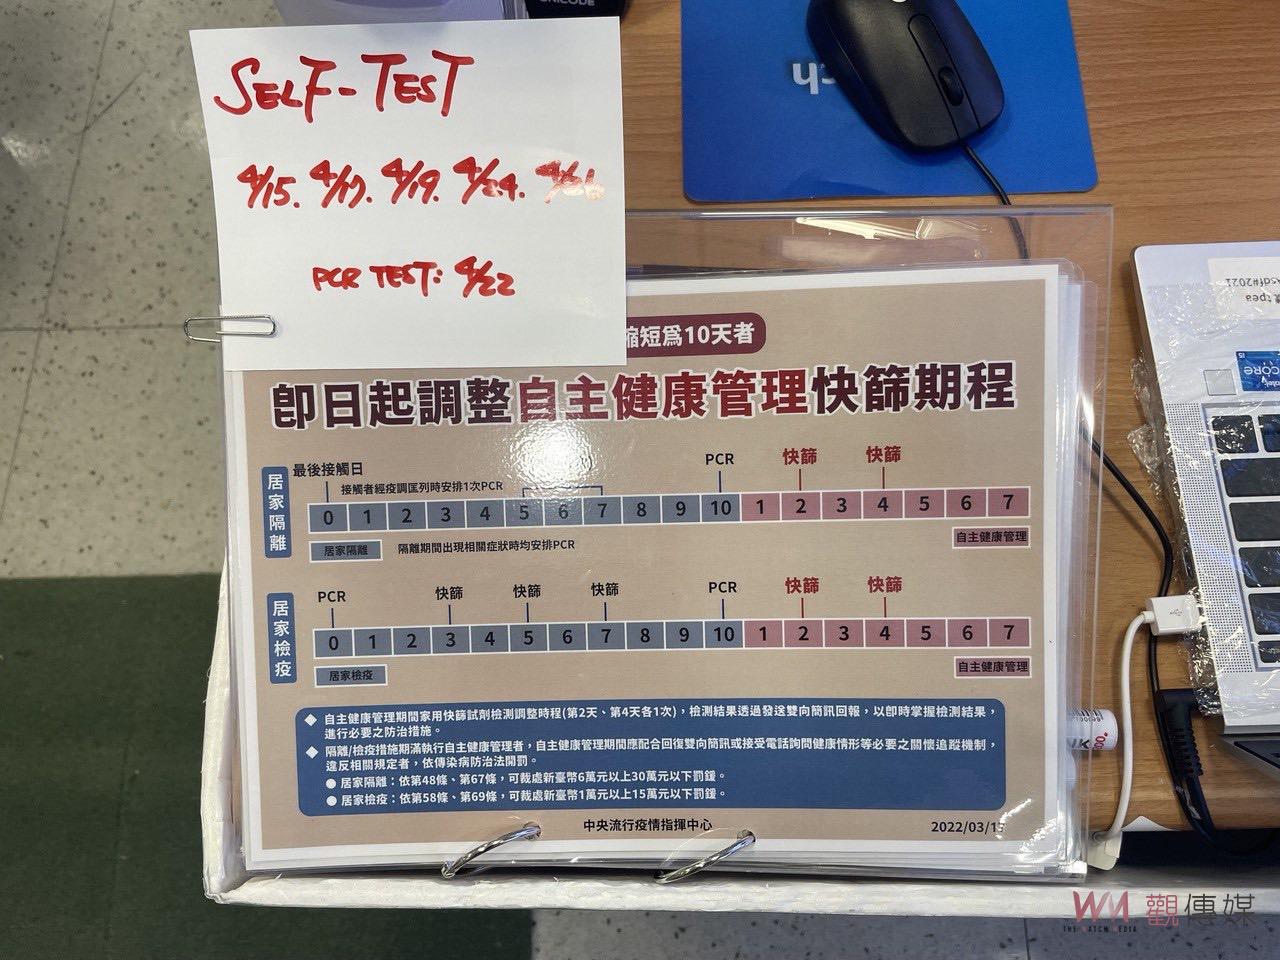 UNICODE
SELF-TEST
4/15. 4/17. 4/19. 4/24. 4/26
PCR TEST: 4/22
縮短為10天者
即日起調整自主健康管理快篩期程
居家隔離
最後接觸日
接觸者經疫調匡列時安排1次PCR
PCR 快篩 快篩
0 1 2 3 4 5 6 7 8 9 10 1 2 3 4 5 6 7
居家隔離 隔離期間出現相關症狀時均安排PCR 自主健康管理
居家檢疫
PCR 快篩 快篩 快篩 PCR 快篩 快篩
0 1 2 3 4 5 6 7 8 9 10 1 2 3 4 5 6 7
居家檢疫 自主健康管理
◆ 自主健康管理期間家用快篩試劑檢測調整時程(第2天、第4天各1次)，檢測結果透過發送雙向簡訊回報，以即時掌握檢測結果，
進行必要之防治措施。
◆ 隔離/檢疫措施期滿執行自主健康管理者，自主健康管理期間應配合回復雙向簡訊或接受電話詢問健康情形等必要之關懷追蹤機制，
違反相關規定者，依傳染病防治法開罰。
● 居家隔離：依第48條、第67條，可裁處新臺幣6萬元以上30萬元以下罰鍰。
● 居家檢疫：依第58條、第69條，可裁處新臺幣1萬元以上15萬元以下罰鍰。
中央流行疫情指揮中心
2022/03/15
asdf#2021
tpea
intel
CORE
i5
WM 觀傳媒
THE WATCH MEDIA